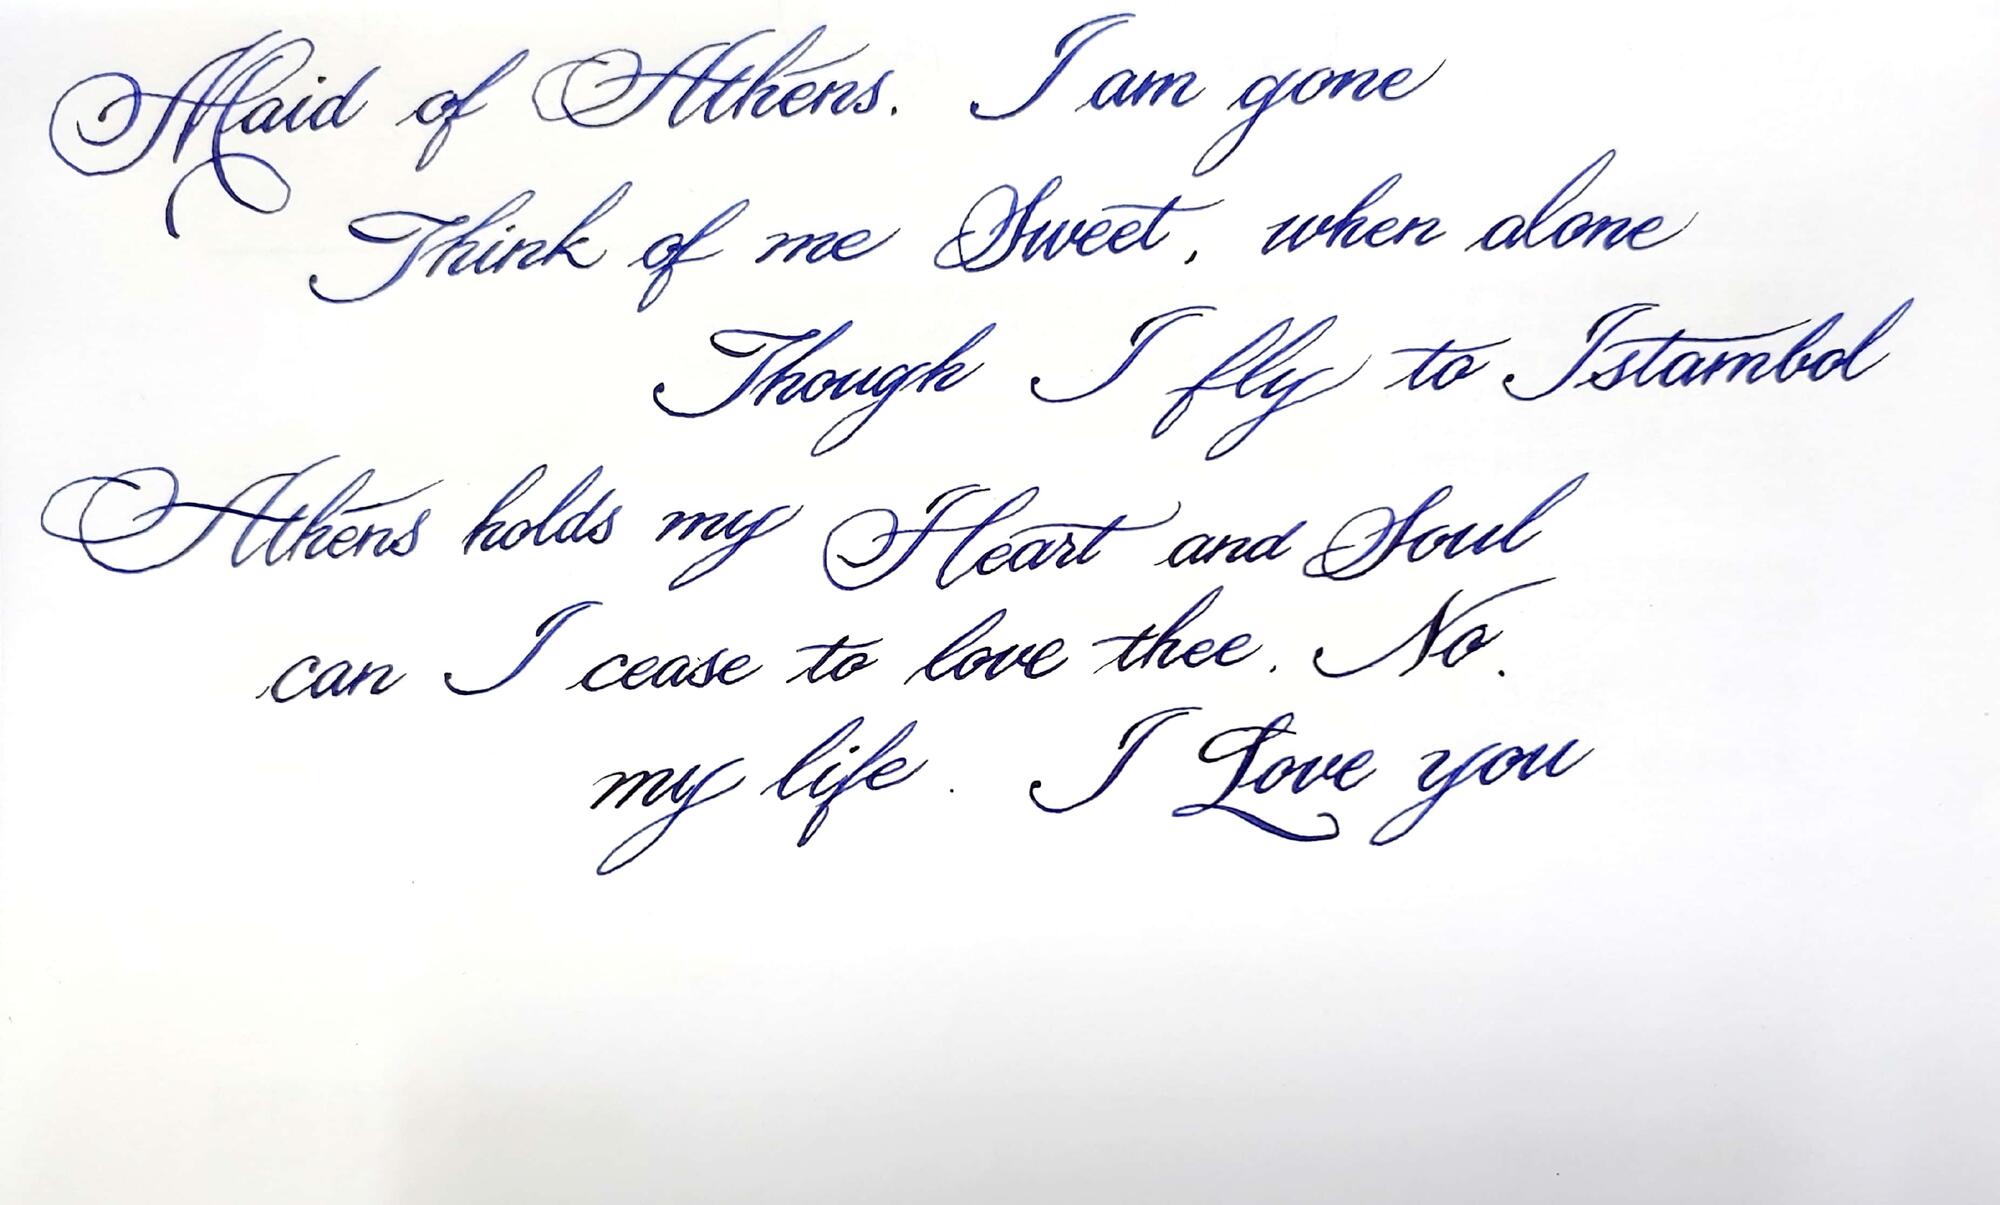 Maid of Athens. I am gone
Think of me Sweet, when alone
Though I fly to Istambol
Athens holds my Heart and Soul
can I cease to love thee. No.
my life. I Love you